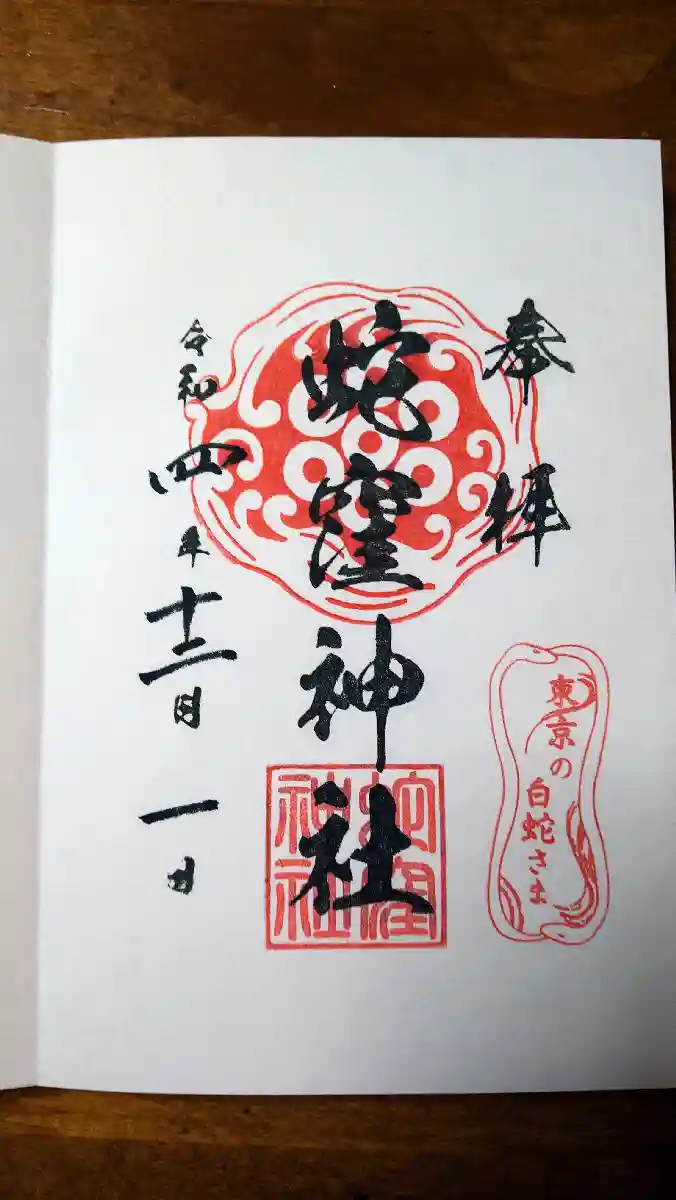 奉拝
東京の
白蛇さま
蛇窪神社
蛇窪
神社
令和四年十二月一日